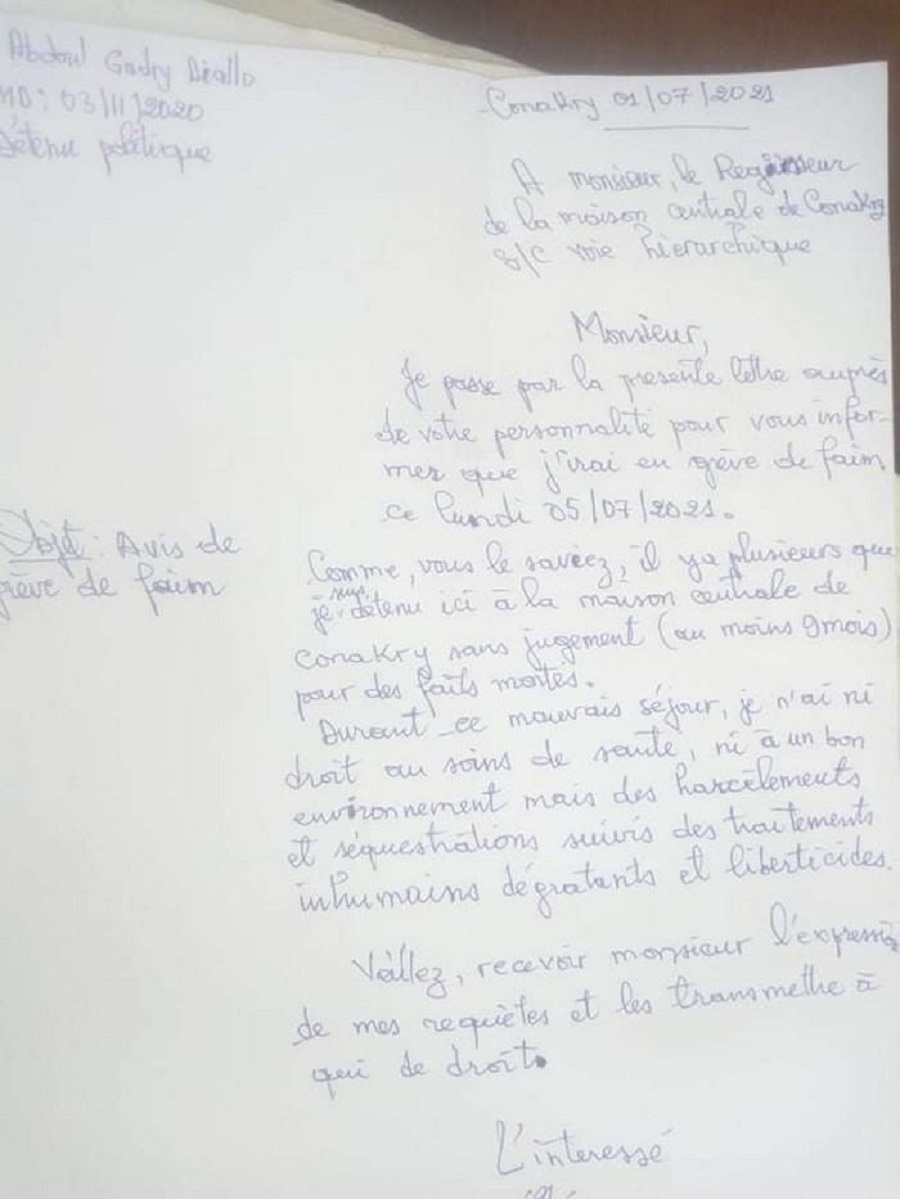 Abdoul Gadry Diallo
MD: 03/11/2020
Détenu politique
Conakry 01/07/2021
A monsieur, le Regisseur
de la maison centrale de Conakry
s/c voie hierarchique
Monsieur,
Je passe par la presente lettre auprès
de votre personnalité pour vous infor-
mer que j'irai en grève de faim
ce lundi 05/07/2021.
Objet: Avis de
grève de faim
Comme, vous le saviez, il ya plusieurs que
je suis détenu ici à la maison centrale de
Conakry sans jugement (au moins 9mois)
pour des faits montés.
Durant ce mauvais séjour, je n'ai ni
droit au soins de santé, ni à un bon
environnement mais des harcèlements
et séquestrations suivis des traitements
inhumains dégratants et liberticides.
Veillez, recevoir monsieur l'expression
de mes requiètes et les transmettre à
qui de droit.
L'interessé